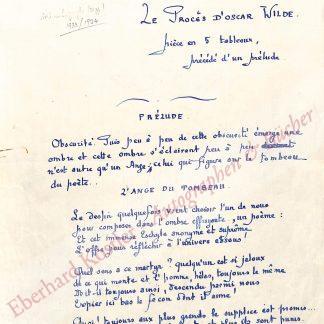 1933/1934
LE PROCÈS D'OSCAR WILDE.
pièce en 5 tableaux,
précédé d'un prélude
PRÉLUDE
Obscurité. Puis peu à peu de cette obscurité émerge une
ombre et cette ombre s'éclairant peu à peu
n'est autre qu'un Ange, celui qui figure sur le tombeau
du poète...
L'ANGE DU TOMBEAU.
Le destin quelquefois vient choisir l'un de nous
pour composer dans l'ombre effrayante, un poème :
Et cet immense Eschyle anonyme et suprême
L'offre pour réfléchir à l'univers absous!
Quel sera ce martyr? quelqu'un est si jaloux
de ce qui monte et l'homme, hélas, toujours le même
est il toujours ainsi, descendu parmi nous
expier ici bas le son dont il aime!
toujours aux plus grands le supplice est promis...
Eberhard Köstler Autographen & Bücher